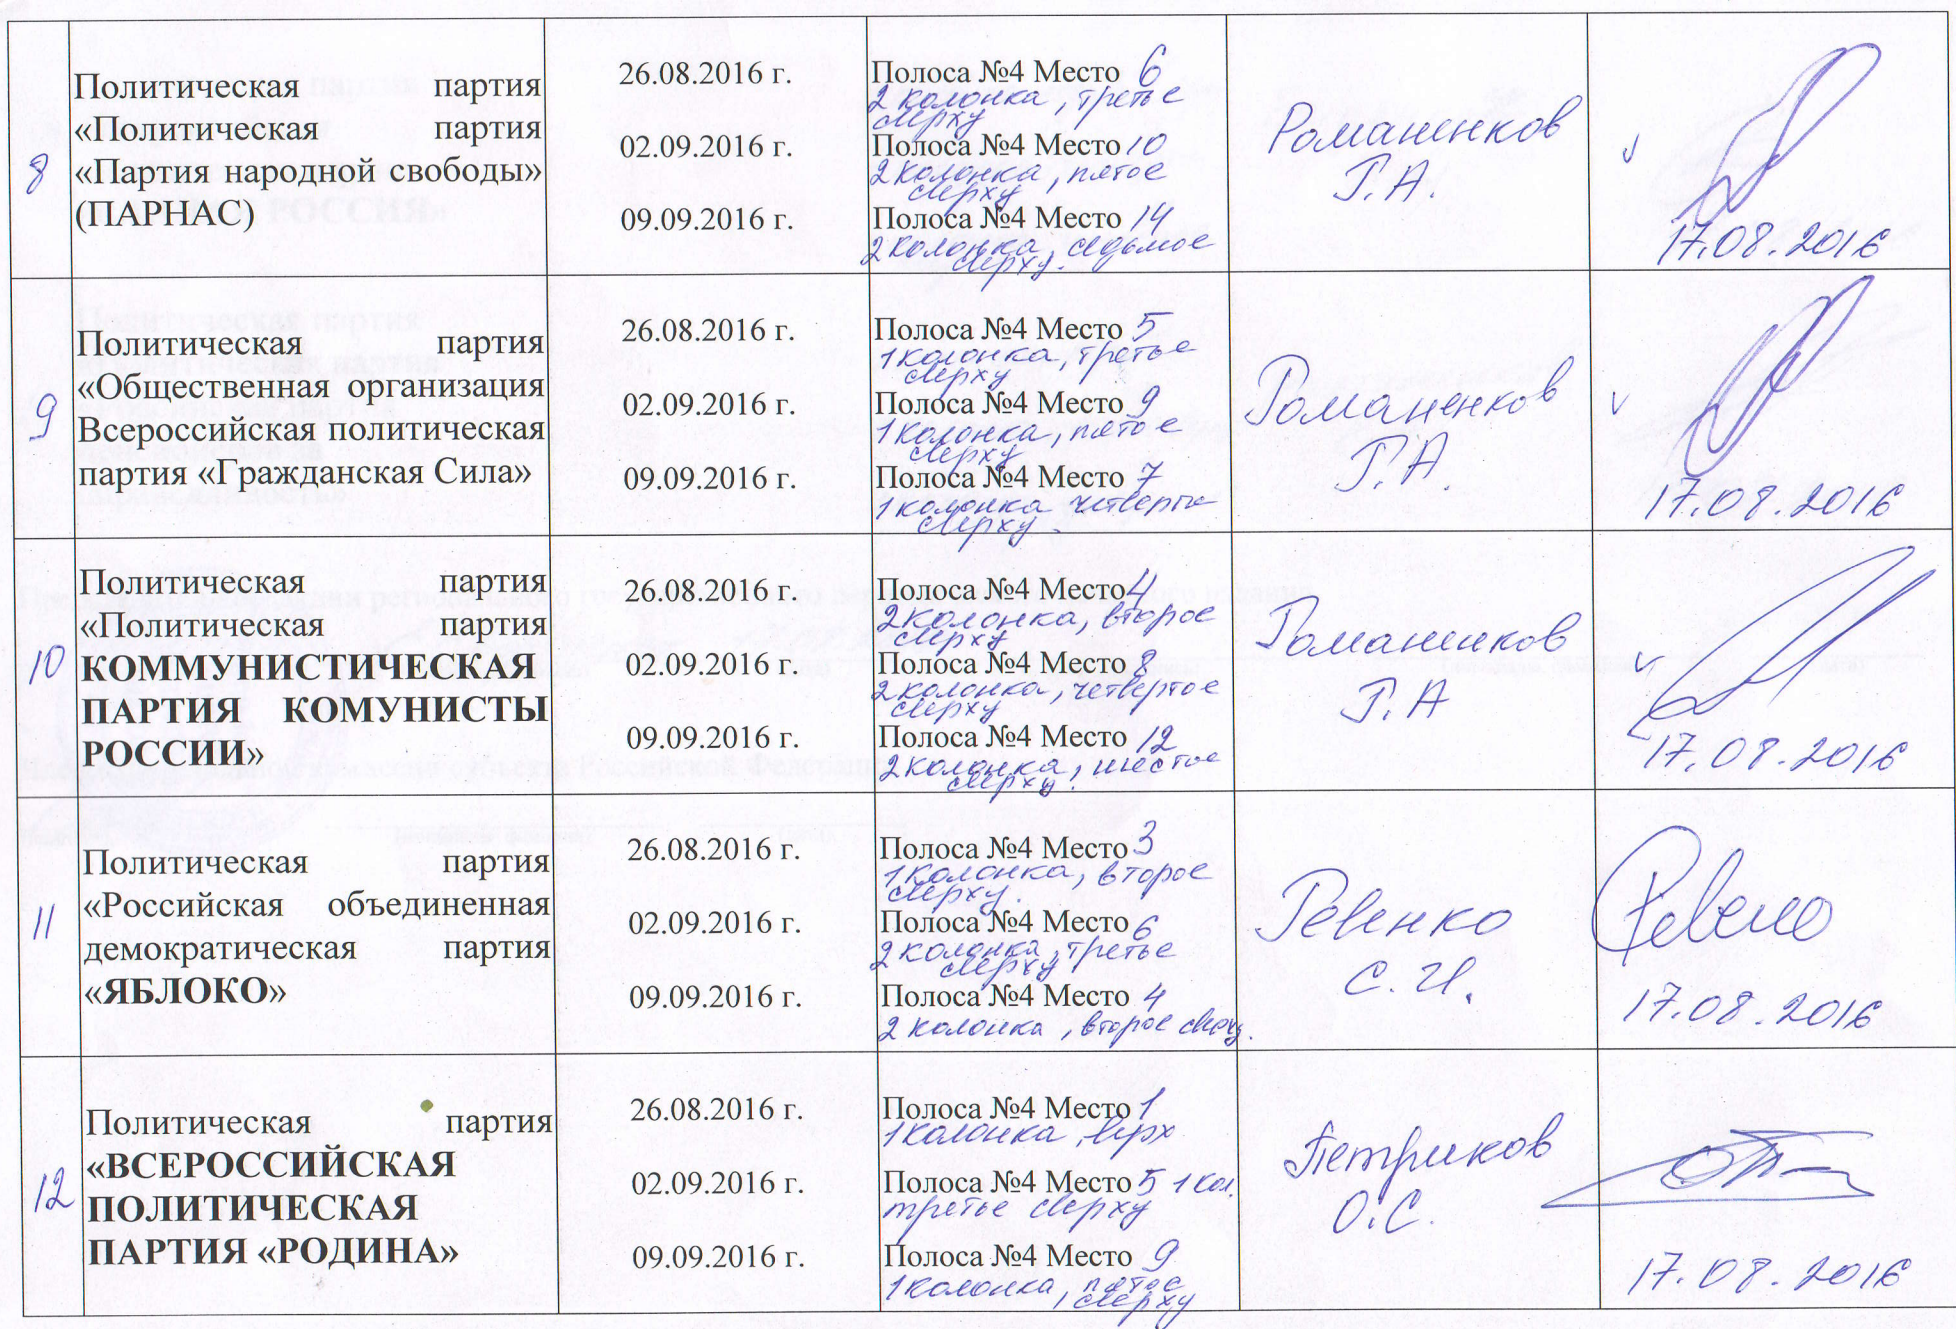 8
Политическая партия
«Политическая партия
«Партия народной свободы»
(ПАРНАС)
26.08.2016 г.
02.09.2016 г.
09.09.2016 г.
Полоса №4 Место 6
2 колонка, третье
сверху
Полоса №4 Место 10
2 колонка, пятое
сверху
Полоса №4 Место 14
2 колонка, седьмое
сверху.
Романенков
Г.А.
17.08.2016
9
Политическая партия
«Общественная организация
Всероссийская политическая
партия «Гражданская Сила»
26.08.2016 г.
02.09.2016 г.
09.09.2016 г.
Полоса №4 Место 5
1 колонка, третье
сверху
Полоса №4 Место 9
1 колонка, пятое
сверху
Полоса №4 Место 7
1 колонка четвертое
сверху
Романенков
Г.А.
17.08.2016
10
Политическая партия
«Политическая партия
КОММУНИСТИЧЕСКАЯ
ПАРТИЯ КОМУНИСТЫ
РОССИИ»
26.08.2016 г.
02.09.2016 г.
09.09.2016 г.
Полоса №4 Место 4
2 колонка, второе
сверху
Полоса №4 Место 8
2 колонка, четвертое
сверху
Полоса №4 Место 12
2 колонка, шестое
сверху.
Романенков
Г.А
17.08.2016
11
Политическая партия
«Российская объединенная
демократическая партия
«ЯБЛОКО»
26.08.2016 г.
02.09.2016 г.
09.09.2016 г.
Полоса №4 Место 3
1 колонка, второе
сверху.
Полоса №4 Место 6
2 колонка, третье
сверху
Полоса №4 Место 4
2 колонка, второе сверху.
Ревенко
С.И.
17.08.2016
12
Политическая партия
«ВСЕРОССИЙСКАЯ
ПОЛИТИЧЕСКАЯ
ПАРТИЯ «РОДИНА»
26.08.2016 г.
02.09.2016 г.
09.09.2016 г.
Полоса №4 Место 1
1 колонка, верх
Полоса №4 Место 5 1 кол.
третье сверху
Полоса №4 Место 9
1 колонка, пятое
сверху
Петриков
О.С.
17.08.2016